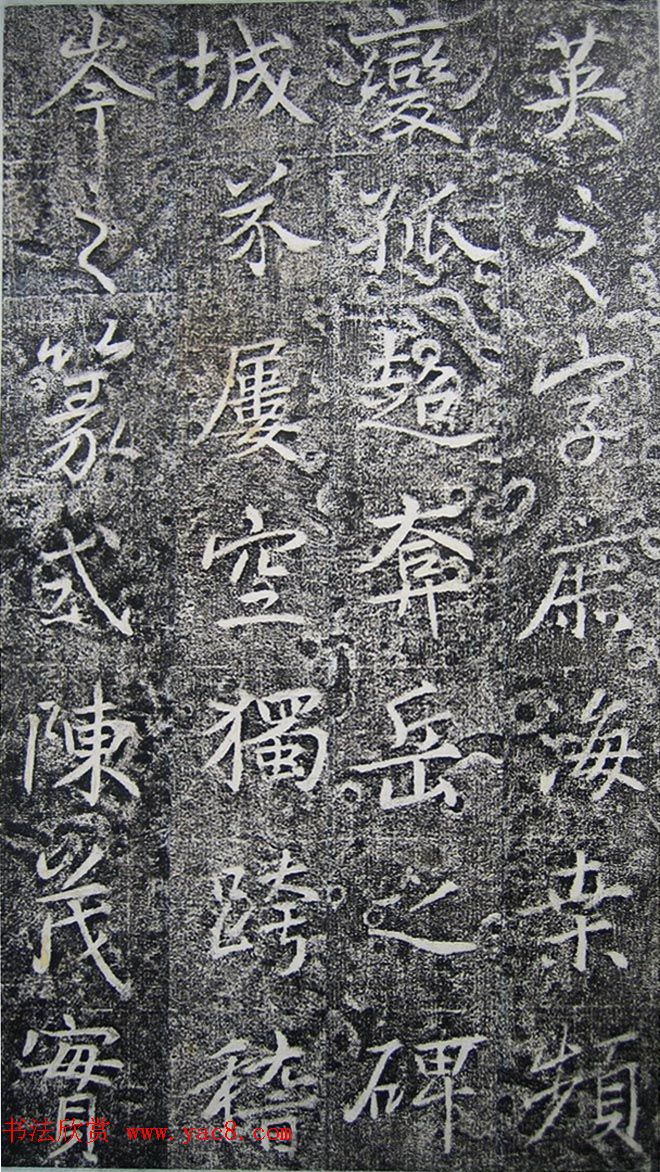 英之字庶海桒頻
變孤超奪岳之碑
城芥屢空獨跨稽
岑之篆式陳茂實
书法欣赏 www.yac8.com